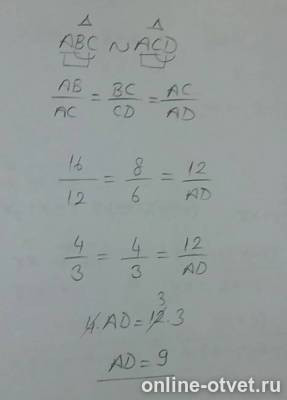 △ △
ABC ~ ACD
AB/AC = BC/CD = AC/AD
16/12 = 8/6 = 12/AD
4/3 = 4/3 = 12/AD
3
4·AD = 12·3
AD = 9
online-otvet.ru